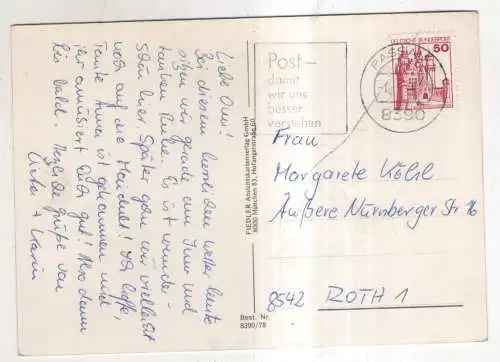 Liebe Omi!
Bei diesem herrlichen Wetter heute
sitzen wir gerade am Inn und
Es ist wunder-
schön hier. Später gehen wir vielleicht
noch auf die
Tante Anni ist gekommen und
ihr amüsiert Euch gut! Also dann
bis bald. Herzliche Grüße von
+ Karin
FIEDLER Ansichtskartenverlag GmbH
8000 München 83, Hofangerstraße 60
Best. Nr.
8390/78
Post –
damit
wir uns
besser
verstehen
DEUTSCHE BUNDESPOST
50
PASSAU
8390
Frau
Margarete Köhl
Äußere Nürnberger Str 16
8542 ROTH 1